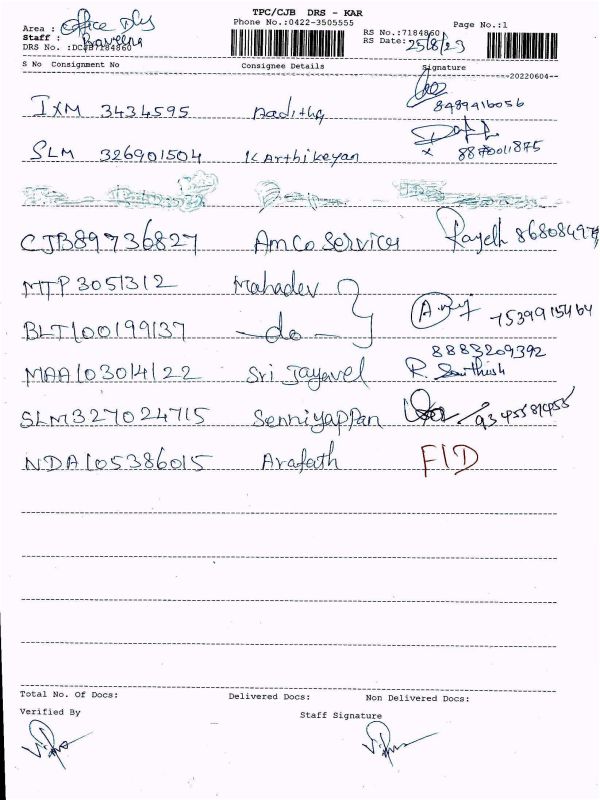 TPC/CJB DRS - KAR
Phone No.:0422-3505555
Page No.:1
Area : Office Dly
Staff : Raveena
DRS No. :DCJB7184860
RS No.:7184860
RS Date: 25/8/23
S No Consignment No Consignee Details Signature
20220604
IXM 3434595 Aaditha 8489416056
SLM 326901504 Karthikeyan 8870011875
CJB89736827 Amco Services
MTP3051312 Mahadev
BLT100199137 -do- 7539915464
MAA103014122 Sri Jayavel 8883209392
SLM327024715 Senniyappan
NDA105386015 Arafath FID
Total No. Of Docs: Delivered Docs: Non Delivered Docs:
Verified By Staff Signature